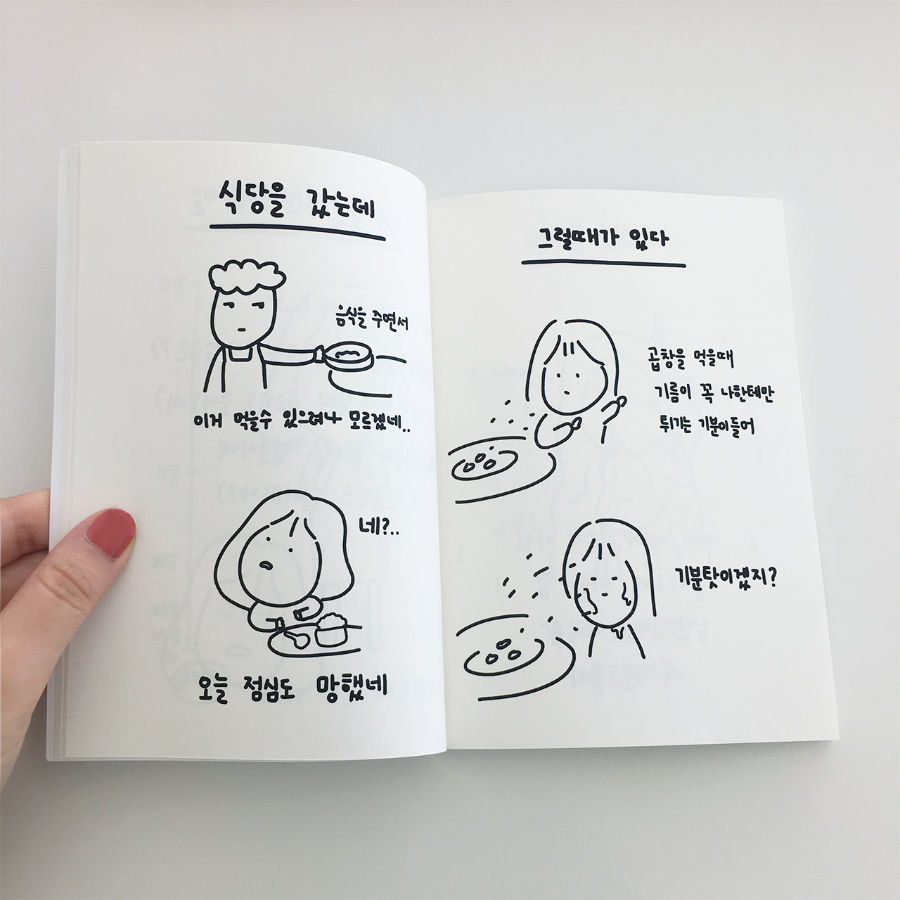 식당을 갔는데
음식을 주면서
이거 먹을수 있으려나 모르겠네..
네?..
오늘 점심도 망했네
그럴때가 있다
곱창을 먹을때
기름이 꼭 나한테만
튀기는 기분이들어
기분탓이겠지?